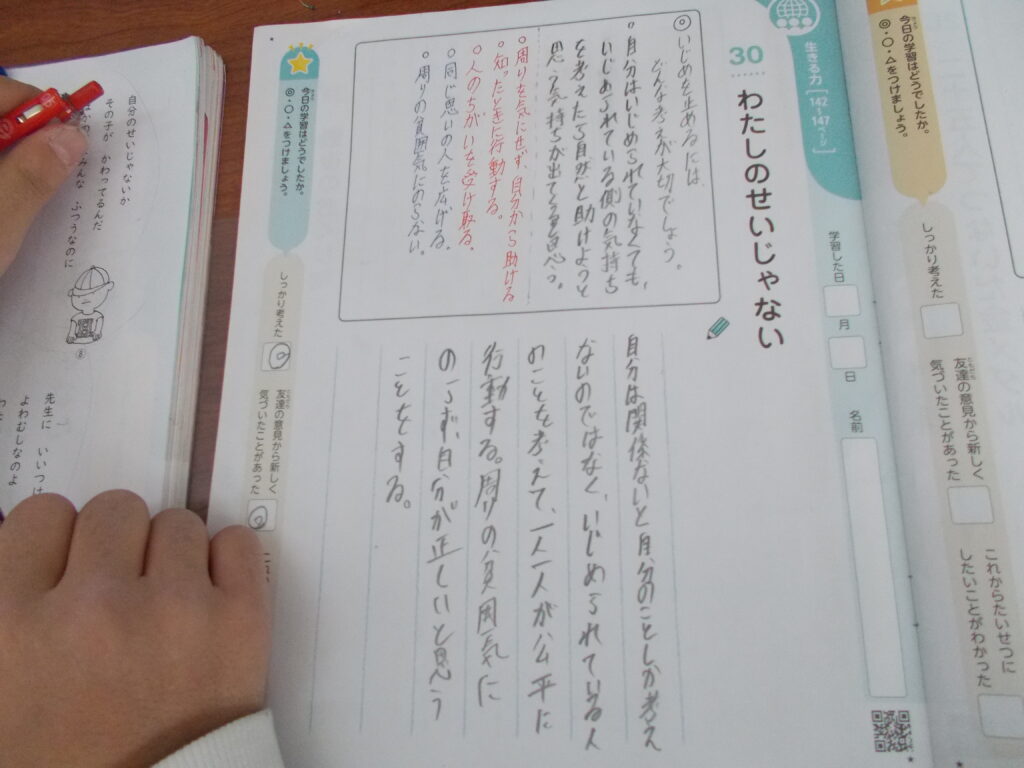 生きる力［142〜147ページ］
30
わたしのせいじゃない
学習した日
月
日
名前
◎いじめを止めるには、
どんな考えが大切でしょう。
・自分はいじめられていなくても、
いじめられている側の気持ち
を考えたら自然と助けようと
思う気持ちが出てくると思う。
○周りを気にせず自分から助ける
○知ったときに行動する。
○人のちがいを受け取る。
○同じ思いの人を広げる。
○周りの雰囲気にのらない。
自分は関係ないと自分のことしか考え
ないのではなく、いじめられている人
のことを考えて、一人一人が公平に
行動する。周りの雰囲気に
のらず、自分が正しいと思う
ことをする。
今日の学習はどうでしたか。
◎・○・△をつけましょう。
しっかり考えた
◎
友達の意見から新しく
気づいたことがあった
◎
今日の学習はどうでしたか。
◎・○・△をつけましょう。
しっかり考えた
友達の意見から新しく
気づいたことがあった
これからたいせつに
したいことがわかった
自分のせいじゃないか
その子が かわってるんだ
ふつうなのに
⑧
先生に いいつけ
よわむしなのよ